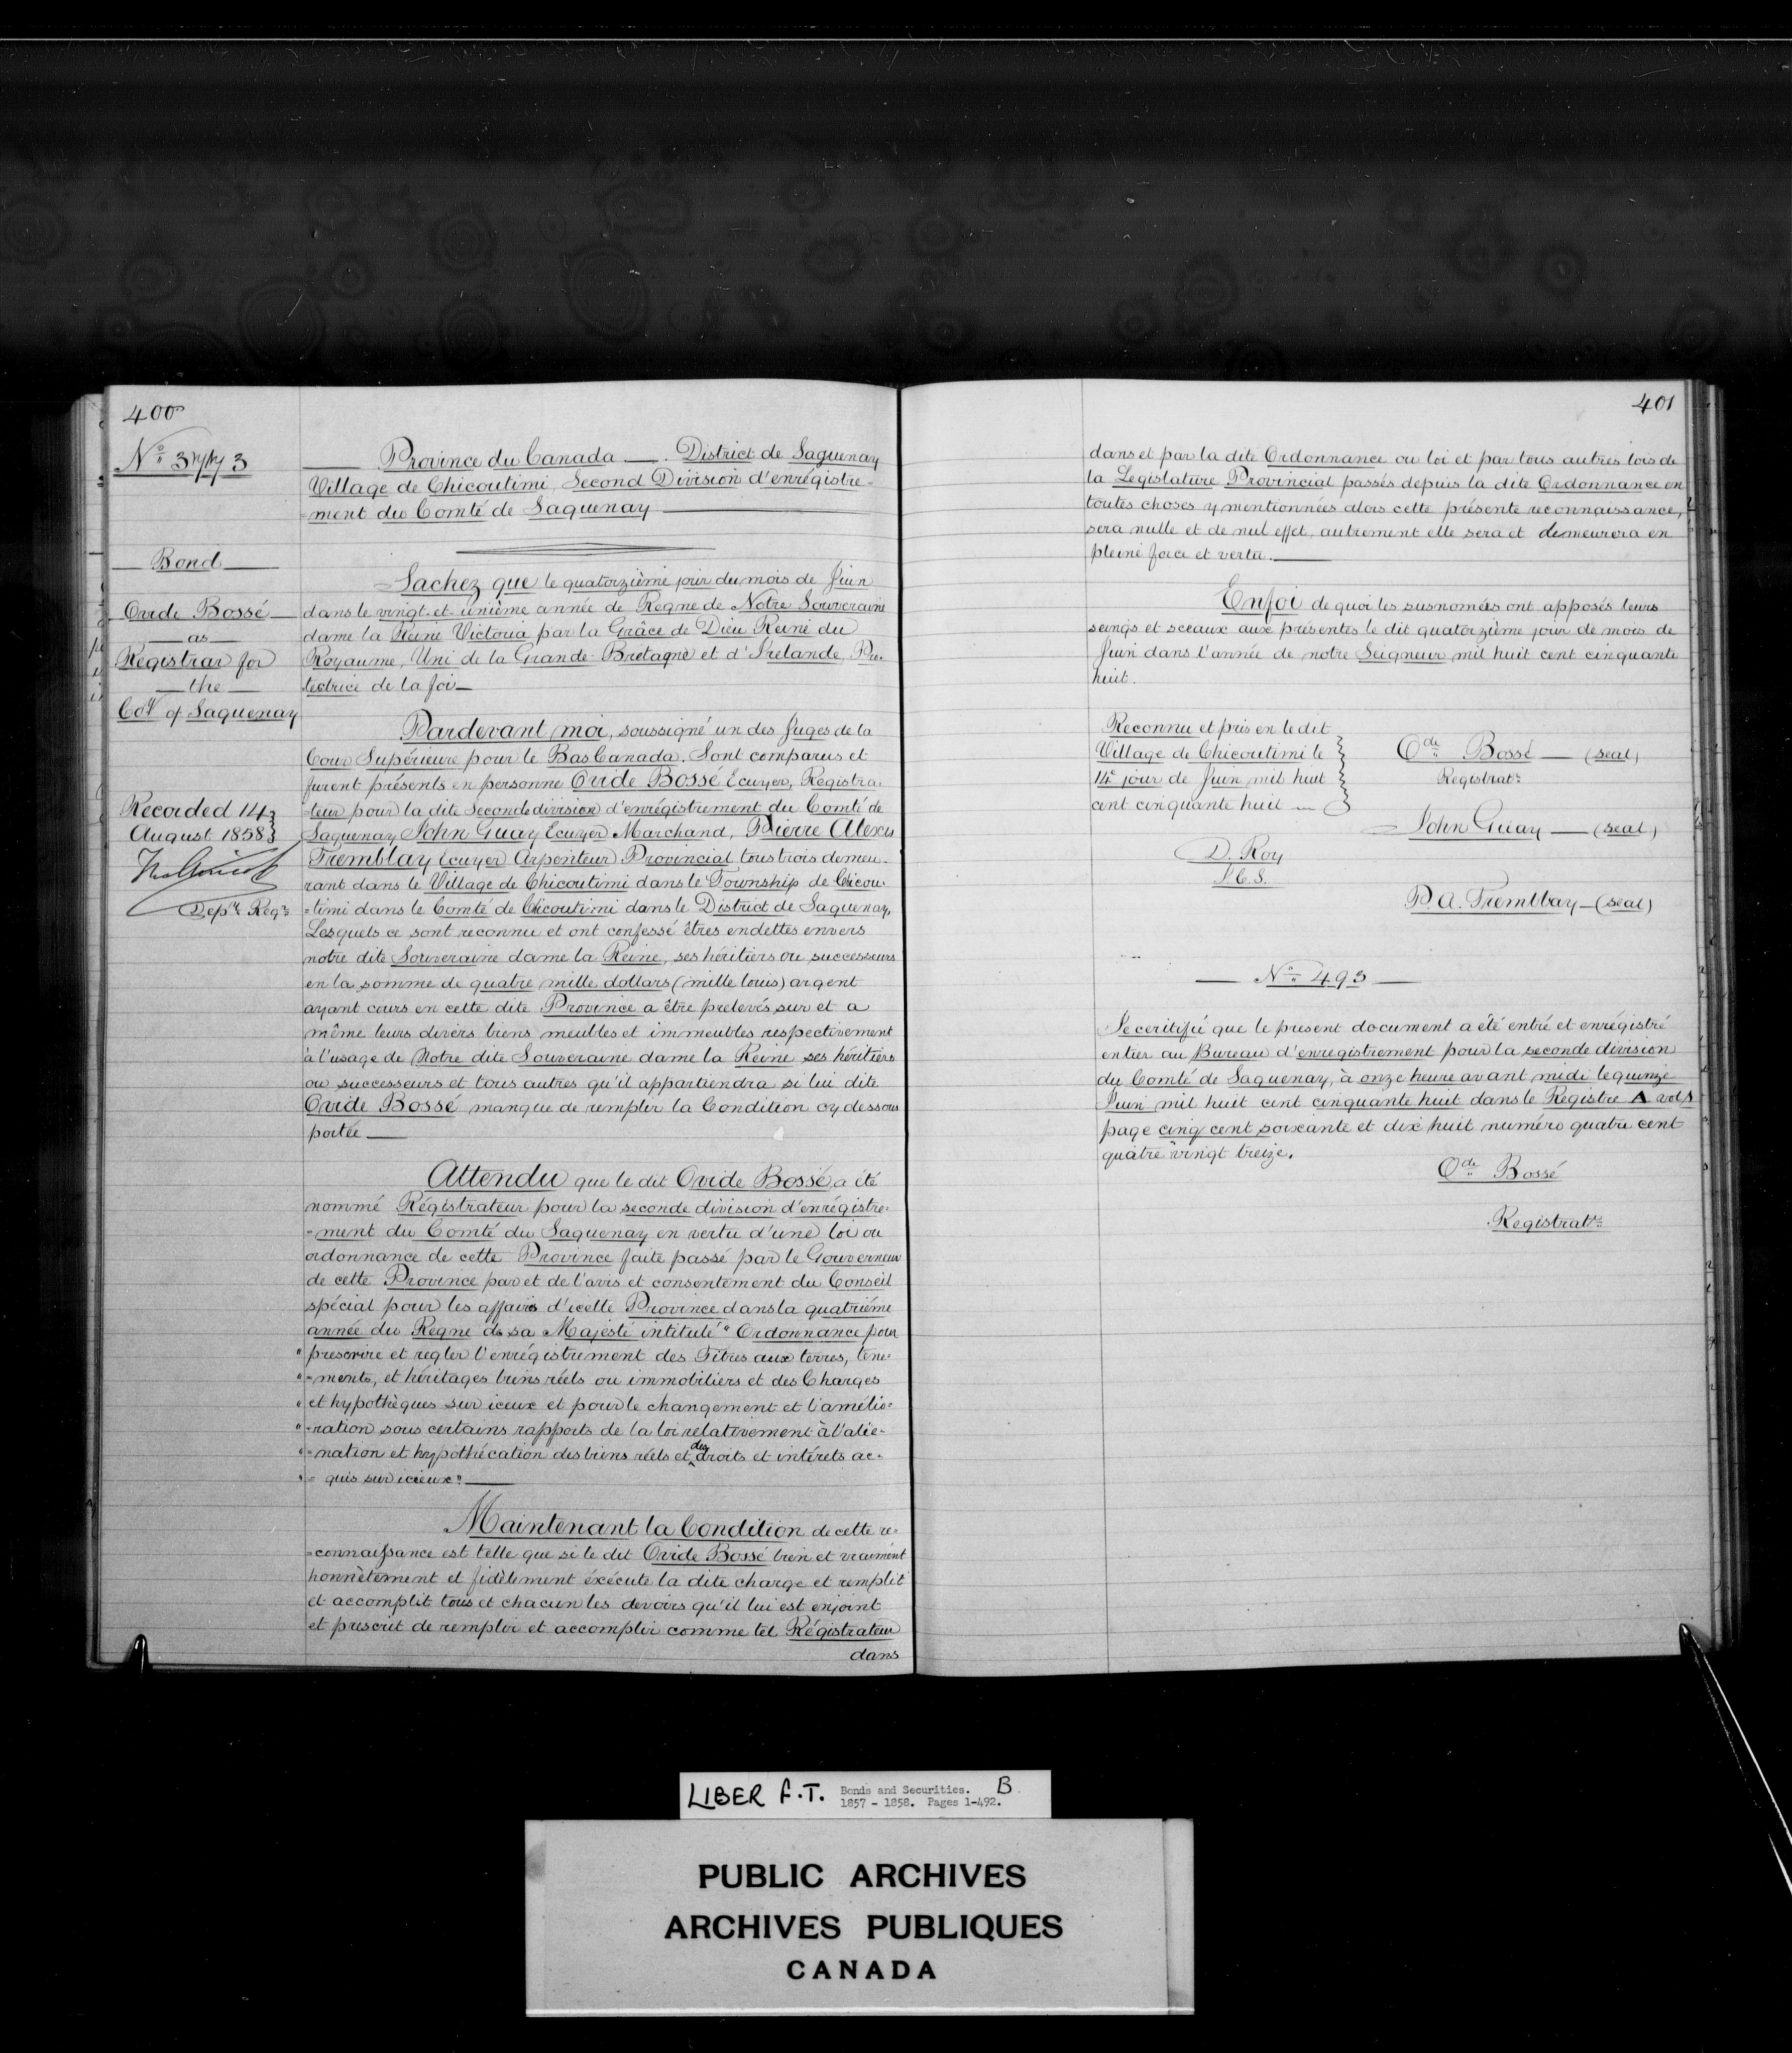 400
No 3773
Bond
Ovide Bossé
as
Registrar for
the
Coy of Saguenay
Recorded 14
August 1858
Depy Regr
Province du Canada . District de Saguenay
Village de Chicoutimi, Second Division d'enrégistre-
=ment du Comté de Saguenay
Sachez que le quatorzième jour du mois de Juin
dans le vingt-et-unième année de Regne de Notre Souveraine
dame la Reine Victoria par la Grâce de Dieu Reine du
Royaume, Uni de la Grande-Bretagne et d'Irelande, Pro-
tectrice de la foi
Pardevant moi, soussigné un des Juges de la
Cour Supérieure pour le Bas Canada. Sont comparus et
furent présents en personne Ovide Bossé Ecuyer, Registra-
=teur pour la dite Seconde division d'enrégistrement du Comté de
Saguenay John Guay Ecuyer Marchand, Pierre Alexis
Tremblay Ecuyer Arpenteur Provincial tous trois demeu-
rant dans le Village de Chicoutimi dans le Township de Chicou-
=timi dans le Comté de Chicoutimi dans le District de Saguenay,
Lesquels ce sont reconnu et ont confessé êtres endettes envers
notre dite Souveraine dame la Reine, ses héritiers ou successeurs
en la somme de quatre mille dollars (mille louis) argent
ayant cours en cette dite Province a être prelevés sur et a
même leurs divers biens meubles et immeubles respectivement
à l'usage de Notre dite Souveraine dame la Reine ses héritiers
ou successeurs et tous autres qu'il appartiendra si lui dite
Ovide Bossé manque de remplir la Condition cy dessous
portée
Attendu que le dit Ovide Bossé a été
nommé Régistrateur pour la seconde division d'enrégistre-
=ment du Comté du Saguenay en vertu d'une loi ou
ordonnance de cette Province faite passé par le Gouverneur
de cette Province par et de l'avis et consentement du Conseil
spécial pour les affaires d'icelle Province dans la quatrième
année du Regne de sa Majesté intitulé "Ordonnance pour
" prescrire et regler l'enrégistrement des Titres aux terres, tene=
" =ments, et héritages biens réels ou immobiliers et des Charges
" et hypothèques sur iceux et pour le changement et l'amélio=
" =ration sous certains rapports de la loi relativement à l'alie-
" =nation et hypothécation des biens réels et des droits et intérets ac-
" = quis sur icieux"
Maintenant la Condition de cette re=
=connaissance est telle que si le dit Ovide Bossé bien et vraiment
honnètement et fidèlement éxécute la dite charge et remplit
et accomplit tous et chacun les devoirs qu'il lui est enjoint
et prescrit de remplir et accomplir comme tel Régistrateur
dans
401
dans et par la dite Ordonnance ou loi et par tous autres lois de
la Legislature Provincial passés depuis la dite Ordonnance en
toutes choses y mentionnées alors cette présente reconnaissance,
sera nulle et de nul effet, autrement elle sera et demeurera en
pleine force et vertu.
En foi de quoi les susnomées ont apposés leurs
seings et sceaux aux présentes le dit quatorzième jour de mois de
Juin dans l'année de notre Seigneur mil huit cent cinquante
huit.
Reconnu et pris en le dit
Village de Chicoutimi le
14e jour de Juin mil huit
cent cinquante huit
D. Roy
J.C.S.
Ode Bossé (seal)
Registratr
John Guay (seal)
P. A. Tremblay (seal)
No 493
Je ceritifié que le present document a été entré et enrégistré
entier au Bureau d'enregistrement pour la seconde division
du Comté de Saguenay, à onze heure avant midi le quinze
Juin mil huit cent cinquante huit dans le Registre A vol 1
page cinq cent soixante et dix huit numéro quatre cent
quatre vingt treize.
Ode Bossé
Registratr
LIBER F.T. Bonds and Securities. B
1857 - 1858. Pages 1-492.
PUBLIC ARCHIVES
ARCHIVES PUBLIQUES
CANADA